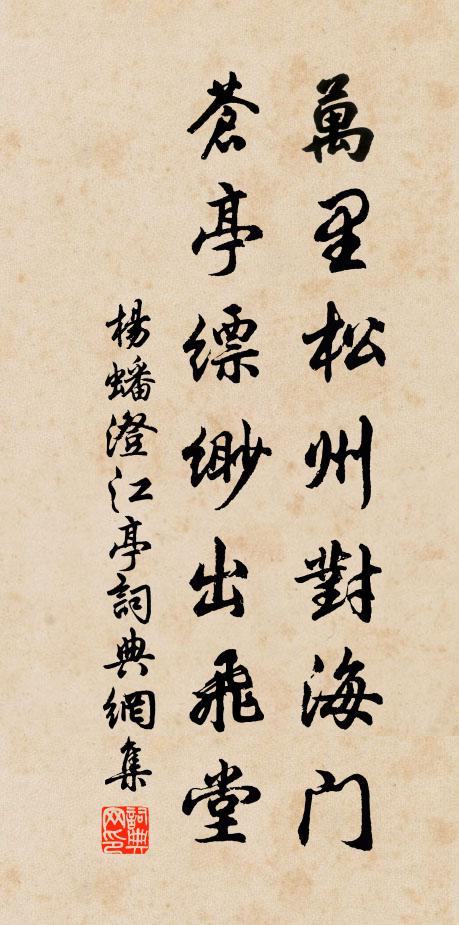 萬里松州對海門
蒼亭縹緲出飛堂
楊蟠澄江亭詞典網集
詞典網印